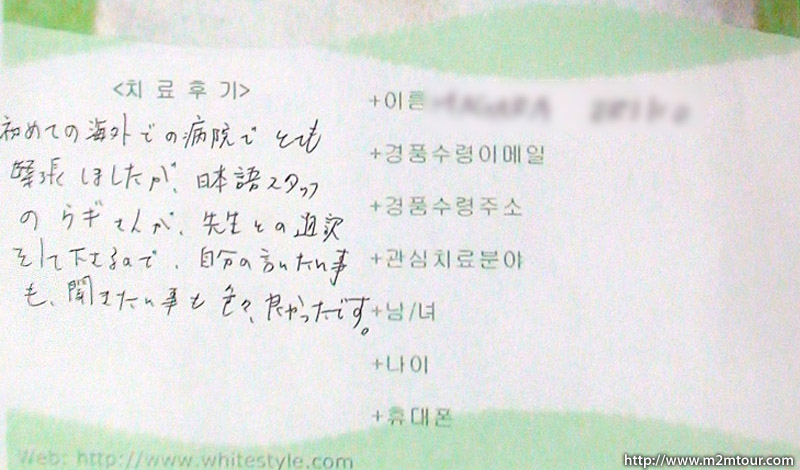 <치 료 후 기>
初めての海外での病院でとても
緊張しましたが、日本語スタッフ
のウギさんが、先生との通訳
をして下さるので、自分の言いたい事
も、聞きたい事も色々、良かったです。
+이름
+경품수령이메일
+경품수령주소
+관심치료분야
+남/녀
+나이
+휴대폰
Web: http://www.whitestyle.com
http://www.m2mtour.com